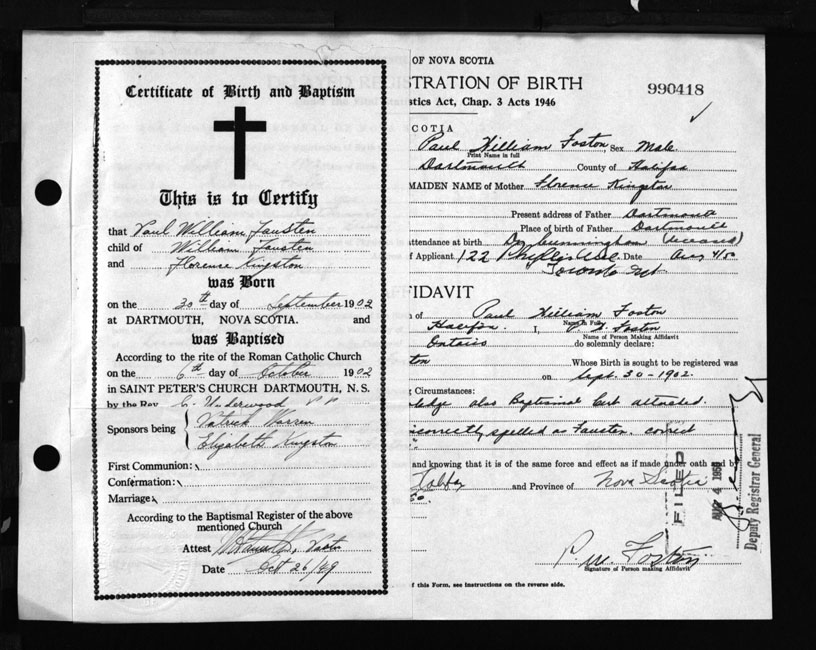 Certificate of Birth and Baptism
This is to Certify
that Paul William Fausten
child of William Fausten
and Florence Kingston
was Born
on the 30th day of September 1902
at DARTMOUTH, NOVA SCOTIA. and
was Baptised
According to the rite of the Roman Catholic Church
on the 6th day of October 1902
in SAINT PETER'S CHURCH DARTMOUTH, N. S.
by the Rev C. Underwood P P
Sponsors being { Patrick Warren
Elizabeth Kingston
First Communion:
Confermation:
Marriage:
According to the Baptismal Register of the above
mentioned Church
Attest
Date Oct 26/49
OF NOVA SCOTIA
STRATION OF BIRTH
990418
stics Act, Chap. 3 Acts 1946
COTIA
Paul William Foston Sex Male
Print Name in full
Dartmouth County of Halifax
MAIDEN NAME of Mother Florence Kingston
Present address of Father Dartmouth
Place of birth of Father Dartmouth
ttendance at birth Dr Cunningham (deceased)
f Applicant 122 Phyllis Ave. Date Aug 4/50
Toronto Ont.
FIDAVIT
of Paul William Foston
Name in Full
Halifax. I, Foston
Name of Person Making Affidavit
Ontario do solemnly declare:
ton Whose Birth is sought to be registered was
on Sept. 30-1902.
Circumstances:
ledge also Baptismal Cert attached.
incorrectly spelled as Fausten. correct
and knowing that it is of the same force and effect as if made under oath and by
Halifax and Province of Nova Scotia
50.
FILED
AUG 4 1950
Deputy Registrar General
P. W. Foston
Signature of Person making Affidavit
f this Form, see instructions on the reverse side.